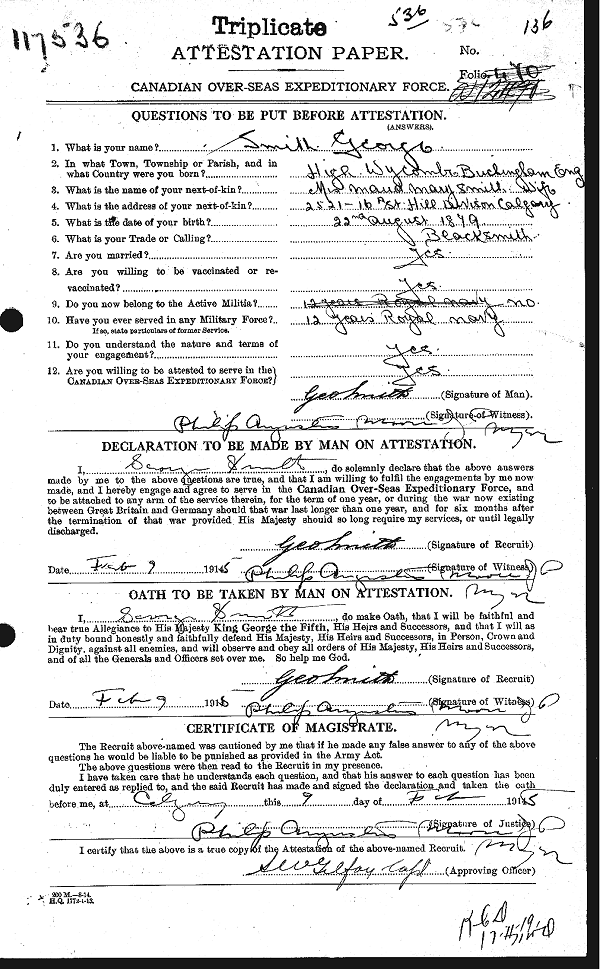 117536
Triplicate
536
136
ATTESTATION PAPER.
No.
Folio.
CANADIAN OVER-SEAS EXPEDITIONARY FORCE.
QUESTIONS TO BE PUT BEFORE ATTESTATION.
(ANSWERS).
1. What is your name? Smith George
2. In what Town, Township or Parish, and in
what Country were you born? High Wycombe Buckingham Eng
3. What is the name of your next-of-kin? Mrs Maud Mary Smith Wife
4. What is the address of your next-of-kin? 2521-16 A St Hill Division Calgary
5. What is the date of your birth? 22nd August 1879
6. What is your Trade or Calling? Blacksmith
7. Are you married? Yes
8. Are you willing to be vaccinated or re-
vaccinated? Yes
9. Do you now belong to the Active Militia? 12 years Royal navy no.
10. Have you ever served in any Military Force? 12 Years Royal navy
If so, state particulars of former Service.
11. Do you understand the nature and terms of
your engagement? Yes
12. Are you willing to be attested to serve in the
CANADIAN OVER-SEAS EXPEDITIONARY FORCE? Yes
Geo Smith (Signature of Man).
Philip Augustus Moore (Signature of Witness).
DECLARATION TO BE MADE BY MAN ON ATTESTATION.
I, George Smith, do solemnly declare that the above answers
made by me to the above questions are true, and that I am willing to fulfil the engagements by me now
made, and I hereby engage and agree to serve in the Canadian Over-Seas Expeditionary Force, and
to be attached to any arm of the service therein, for the term of one year, or during the war now existing
between Great Britain and Germany should that war last longer than one year, and for six months after
the termination of that war provided His Majesty should so long require my services, or until legally
discharged.
Geo Smith (Signature of Recruit)
Date Feb 9 1915 Philip Augustus Moore (Signature of Witness)
OATH TO BE TAKEN BY MAN ON ATTESTATION.
I, George Smith, do make Oath, that I will be faithful and
bear true Allegiance to His Majesty King George the Fifth, His Heirs and Successors, and that I will as
in duty bound honestly and faithfully defend His Majesty, His Heirs and Successors, in Person, Crown and
Dignity, against all enemies, and will observe and obey all orders of His Majesty, His Heirs and Successors,
and of all the Generals and Officers set over me. So help me God.
Geo Smith (Signature of Recruit)
Date Feb 9 1915 Philip Augustus Moore (Signature of Witness)
CERTIFICATE OF MAGISTRATE.
The Recruit above-named was cautioned by me that if he made any false answer to any of the above
questions he would be liable to be punished as provided in the Army Act.
The above questions were then read to the Recruit in my presence.
I have taken care that he understands each question, and that his answer to each question has been
duly entered as replied to, and the said Recruit has made and signed the declaration and taken the oath
before me, at Calgary this 9 day of Feb 1915
Philip Augustus Moore (Signature of Justice)
I certify that the above is a true copy of the Attestation of the above-named Recruit.
Capt (Approving Officer)
200 M.—8-14.
H.Q. 1772-1-13.